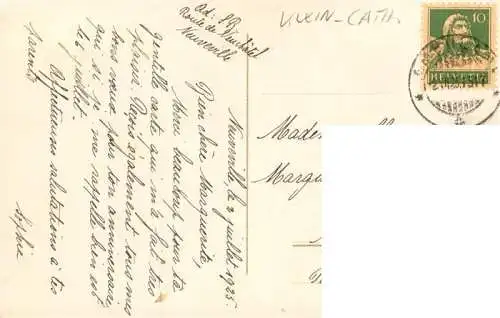 Neuveville, le 2 juillet 1925.
Bien chère Marguerite,
Merci beaucoup pour ta
gentille carte qui m'a fait très
plaisir. Reçois également tous mes
bons vœux pour ton anniversaire
qui si je me rappelle bien est
le 6 juillet.
Affectueuses salutations à tes
parents
Sophie
Adr: S.R.
Route de Neuchâtel
Neuveville
KLEIN-CATH.
10
HELVETIA
Madem
Margu